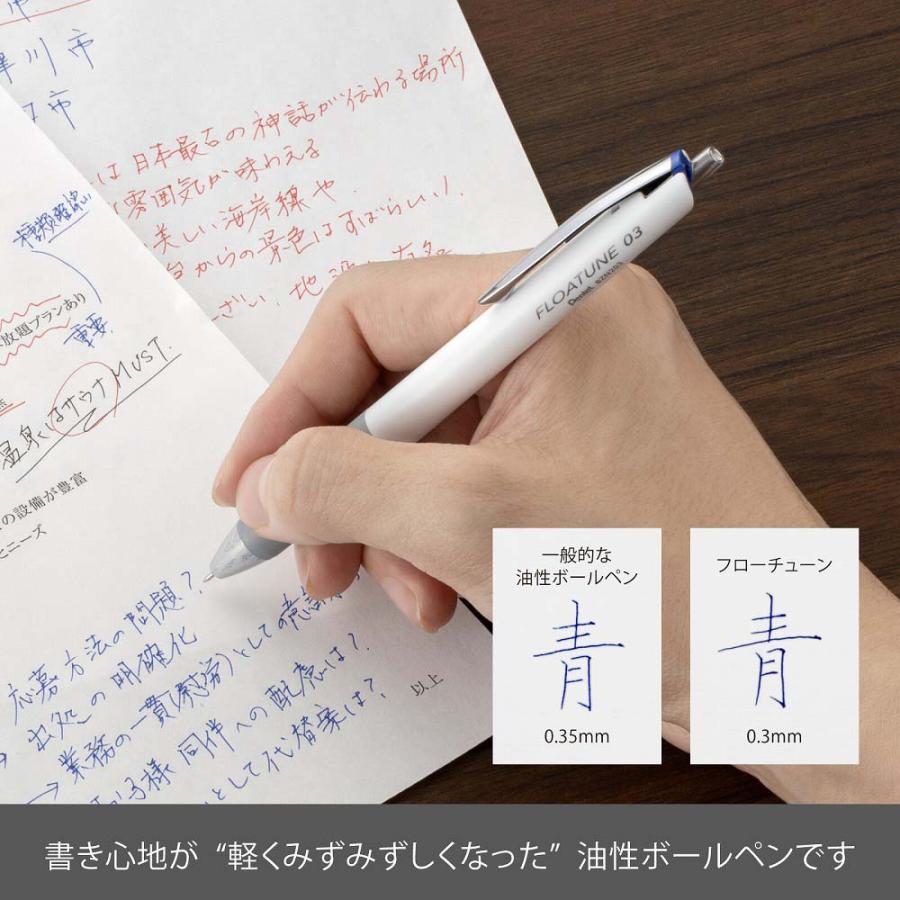 市
津川市
市
は日本最古の神話が伝わる場所
雰囲気が味わえる
美しい海岸線や
からの景色はすばらしい!
放題プランあり
重要
はサウナMUST.
の設備が豊富
とニーズ
FLOATUNE 03
Pentel
応募方法の問題?
出処の明確化
業務の一貫(慰労)としての
子様 同伴への配慮は?
として代替案は?
以上
一般的な
油性ボールペン
青
0.35mm
フローチューン
青
0.3mm
書き心地が “軽くみずみずしくなった” 油性ボールペンです